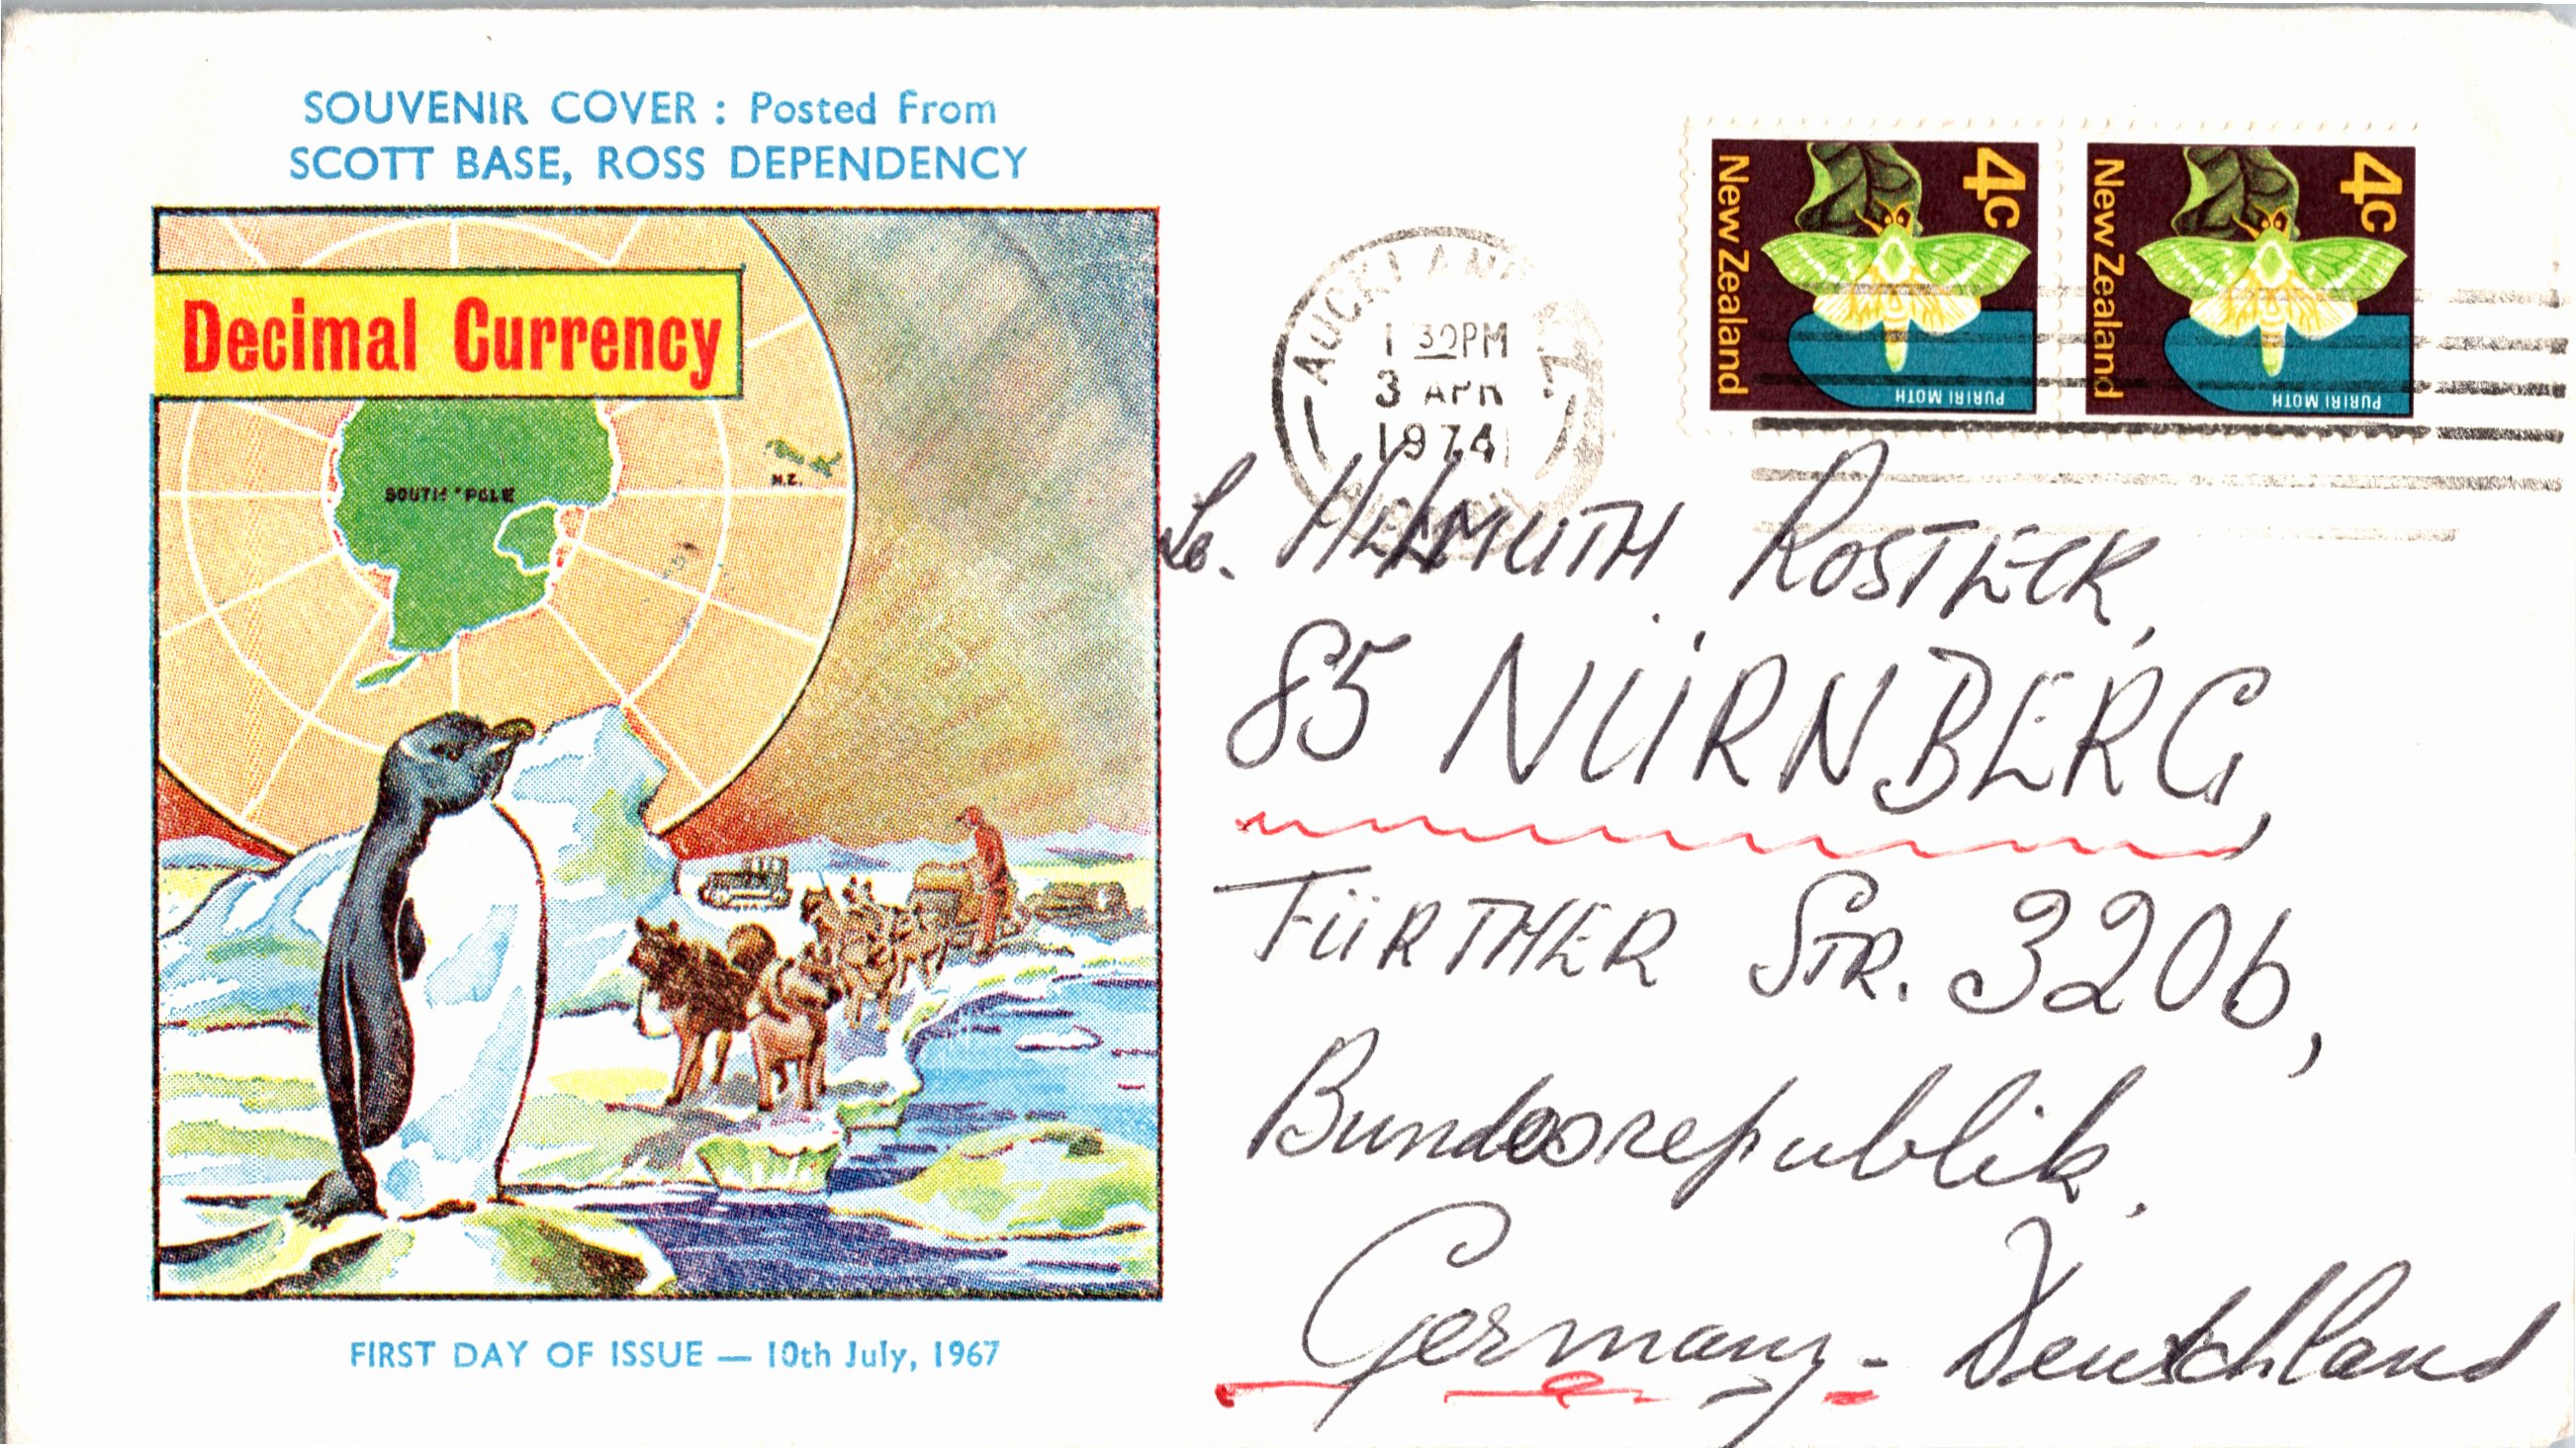 SOUVENIR COVER : Posted From
SCOTT BASE, ROSS DEPENDENCY
Decimal Currency
SOUTH POLE
N.Z.
FIRST DAY OF ISSUE — 10th July, 1967
AUCKLAND
1 30PM
3 APR
1974
4c
New Zealand
PURIRI MOTH
4c
New Zealand
PURIRI MOTH
HELMUTH ROSTECK,
85 NÜRNBERG,
FÜRTHER STR. 320b,
Bundesrepublik,
Germany - Deutschland